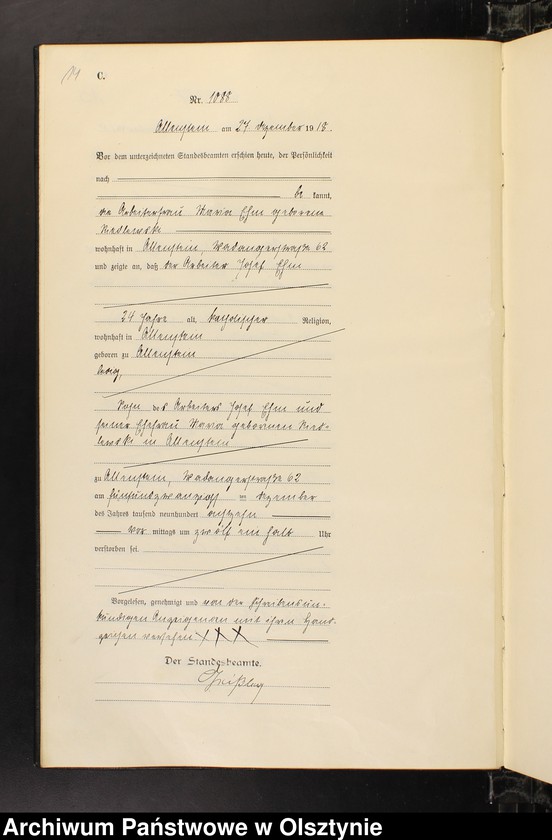 C.
Nr. 1088
Allenstein am 27 Dezember 1918.
Vor dem unterzeichneten Standesbeamten erschien heute, der Persönlichkeit
nach
be kannt,
die Arbeiterfrau Maria Ehm geborene
wohnhaft in Allenstein, Wadangerstraße 62
und zeigte an, daß der Arbeiter Josef Ehm
24 Jahre alt, katholischer Religion,
wohnhaft in Allenstein
geboren zu Allenstein
ledig,
Sohn des Arbeiters Josef Ehm und
seiner Ehefrau Maria geborenen
in Allenstein
zu Allenstein, Wadangerstraße 62
am fünfundzwanzigsten Dezember
des Jahres tausend neunhundert achtzehn
vor mittags um zwölf ein halb Uhr
verstorben sei.
Vorgelesen, genehmigt und von der Schreibensun-
kundigen Anzeigenden mit ihren Hand-
zeichen versehen XXX
Der Standesbeamte.
Archiwum Państwowe w Olsztynie